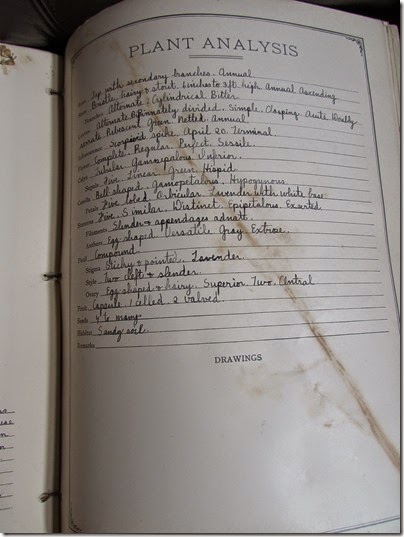 PLANT ANALYSIS
Root Tap with secondary branches. Annual
Stem Bristle, hairy & stout. 6 inches to 3 ft. high. Annual Ascending
Branches Alternate, Cylindrical Bitter
Leaves Alternate Pinnately divided. Simple. Clasping
Alternate Pubescent Green, Netted, Annual
Inflorescence Scorpioid spike, April 20. Terminal.
Flower Complete, Regular, Perfect, Sessile
Calyx Tubular Gamosepalous Inferior.
Sepals Five Linear Green Hispid
Corolla Bell-shaped. Gamopetalous, Hypogynous
Petals Five lobed Orbicular Lavender with white base
Stamens Five. Similar. Distinct Epipetalous. Exserted
Filaments Slender & appendages adnate.
Anthers Egg-shaped Versatile Gray Extrose.
Pistil Compound
Stigma Sticky & pointed. Lavender.
Style Two cleft & slender.
Ovary Egg-shaped & hairy. Superior Two. Central
Fruit Capsule 1 celled 2 valved.
Seeds 4 to many
Habitat Sandy soil.
Remarks
DRAWINGS